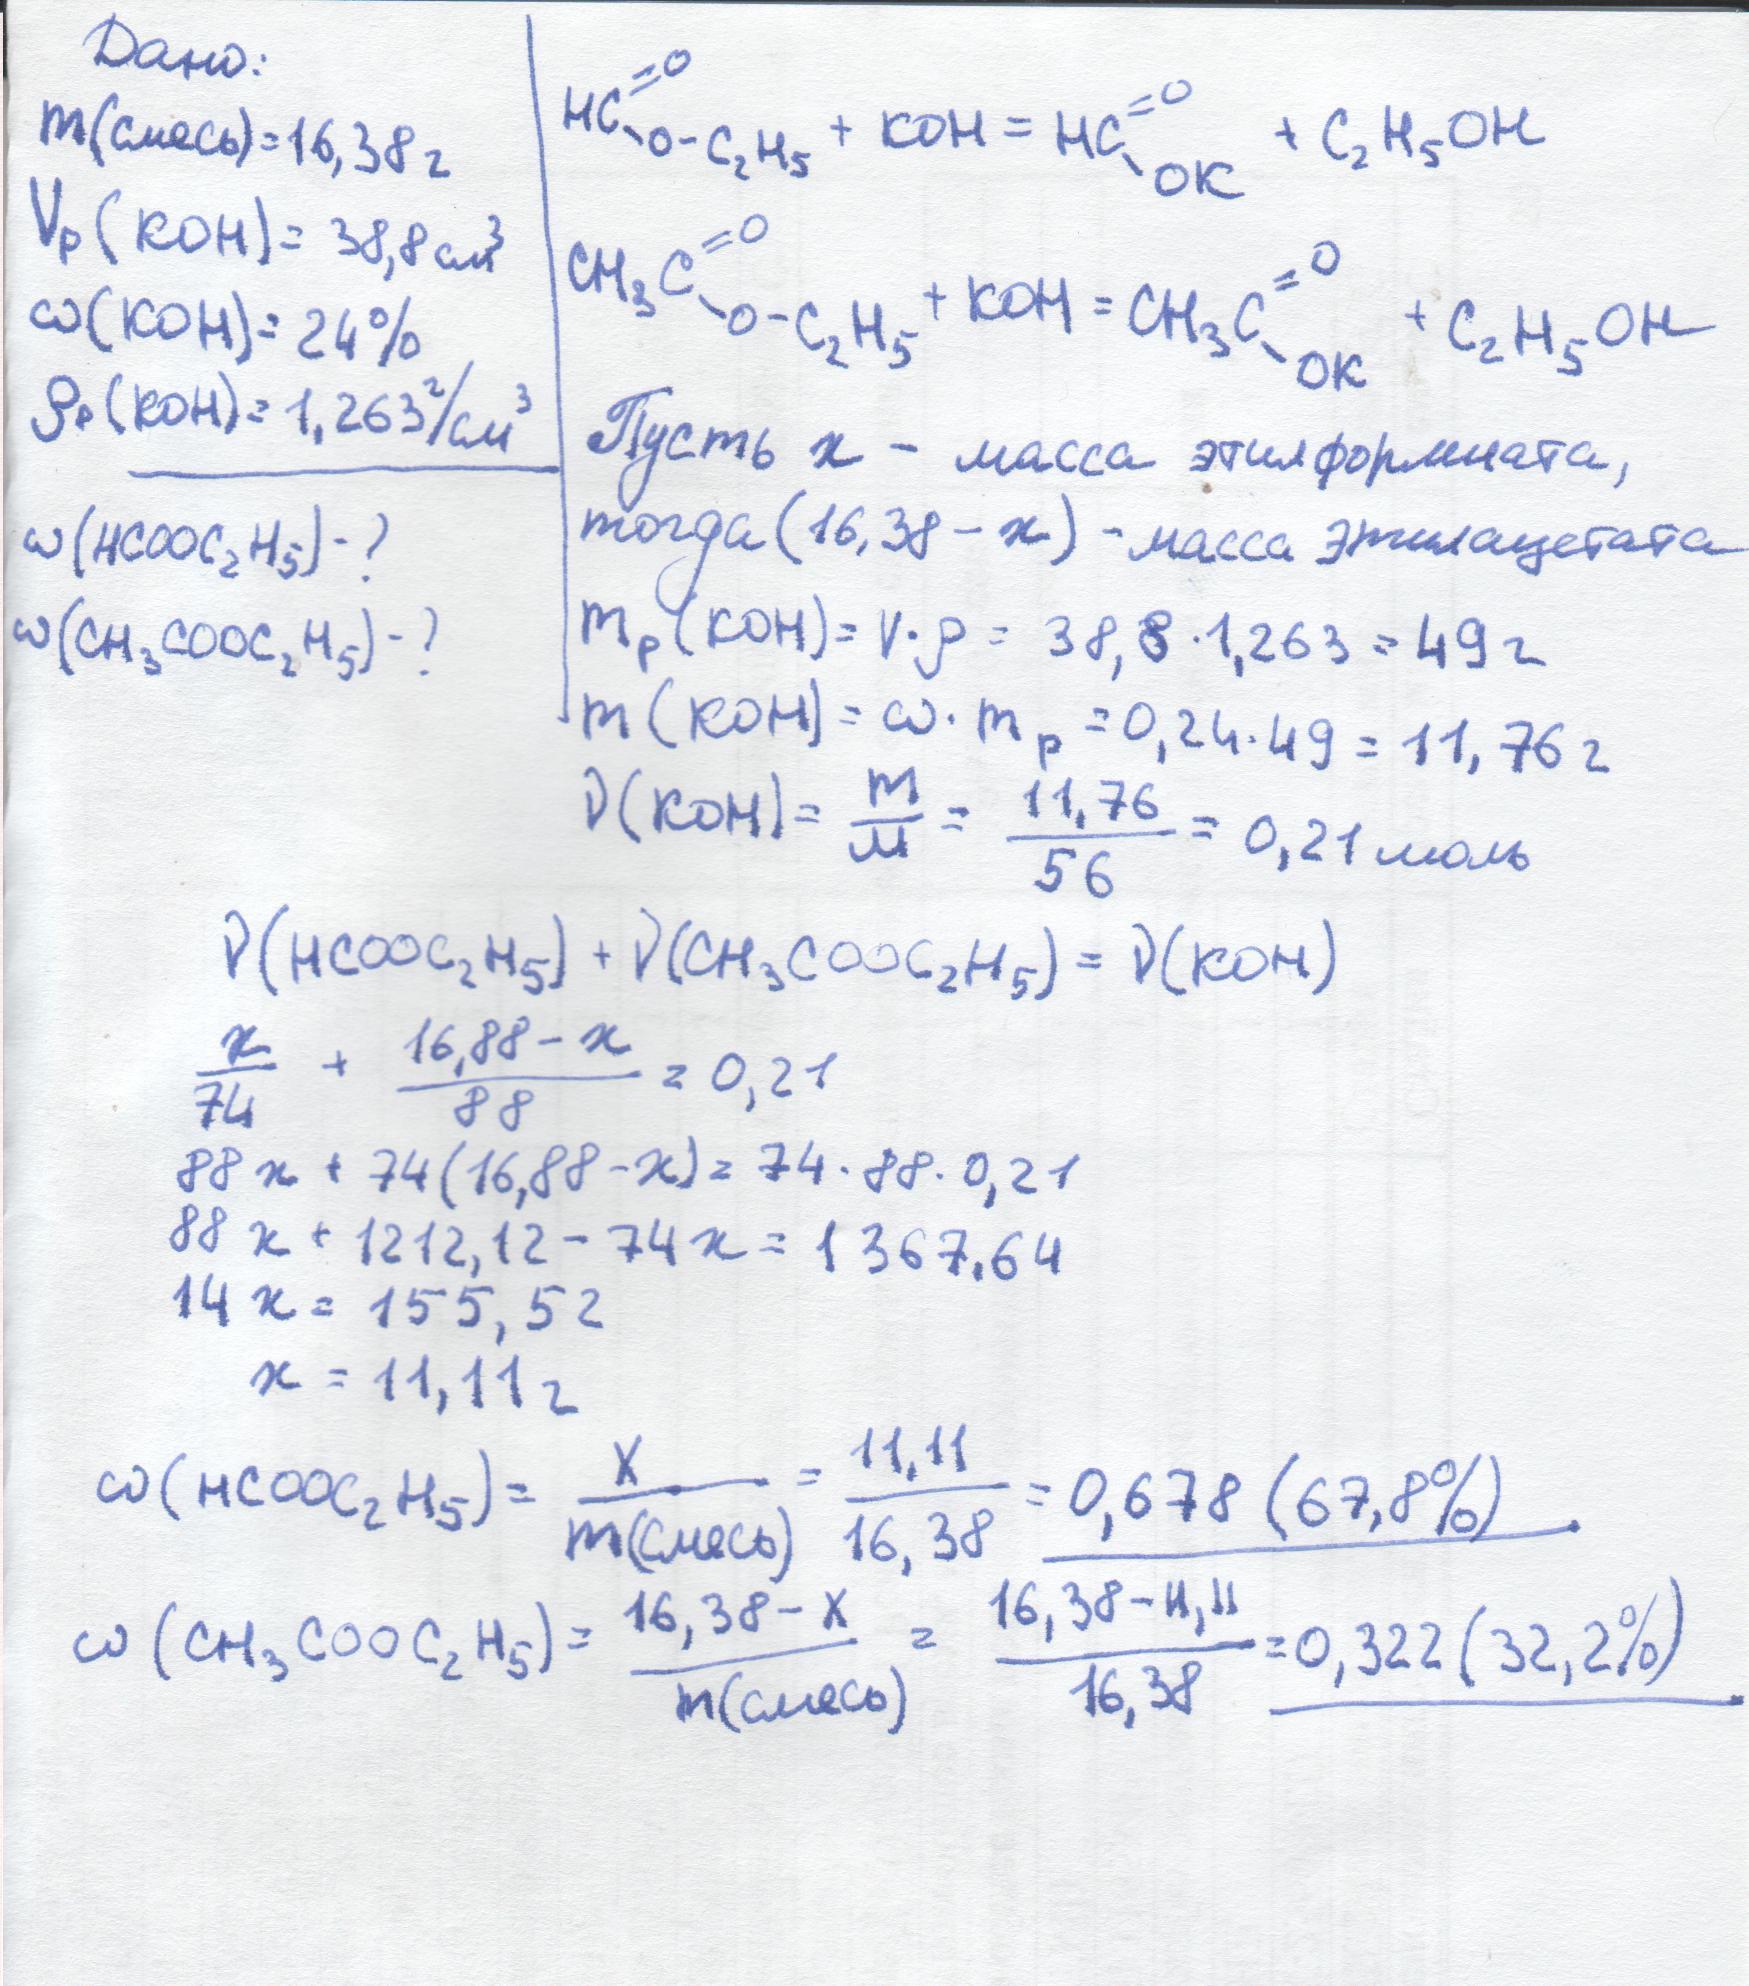 Дано:
m(смесь)=16,38г
Vр(KOH)=38,8см³
ω(KOH)=24%
ρр(KOH)=1,263г/см³
ω(HCOOC₂H₅)-?
ω(CH₃COOC₂H₅)-?
HC=O O-C₂H₅ + KOH = HC=O OK + C₂H₅OH
CH₃C=O O-C₂H₅ + KOH = CH₃C=O OK + C₂H₅OH
Пусть x - масса этилформиата,
тогда (16,38-x) - масса этилацетата
mр(KOH)=V·ρ=38,8·1,263=49г
m(KOH)=ω·mр=0,24·49=11,76г
ν(KOH)=m/M=11,76/56=0,21моль
ν(HCOOC₂H₅)+ν(CH₃COOC₂H₅)=ν(KOH)
x/74 + (16,88-x)/88 = 0,21
88x+74(16,88-x)=74·88·0,21
88x+1212,12-74x=1367,64
14x=155,52
x=11,11г
ω(HCOOC₂H₅)=x/m(смесь)=11,11/16,38=0,678(67,8%)
ω(CH₃COOC₂H₅)=(16,38-x)/m(смесь)=(16,38-11,11)/16,38=0,322(32,2%)